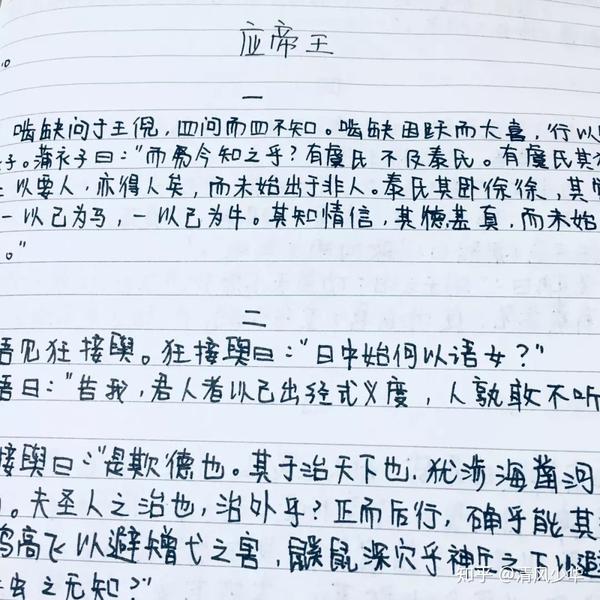 应帝王
一
啮缺问于王倪,四问而四不知。啮缺因跃而大喜,行以
子。蒲衣子曰:"而乃今知之乎?有虞氏不及泰氏。有虞氏其
以要人,亦得人矣,而未始出于非人。泰氏其卧徐徐,其
一以己为马,一以己为牛。其知情信,其德甚真,而未始
。"
二
吾见狂接舆。狂接舆曰:"日中始何以语女?"
吾曰:"告我,君人者以己出经式义度,人孰敢不听
接舆曰:"是欺德也。其于治天下也,犹涉海凿河
。夫圣人之治也,治外乎?正而后行,确乎能其
鸟高飞以避矰弋之害,鼷鼠深穴乎神丘之下以避
虫之无知?"
知乎 @清风少年